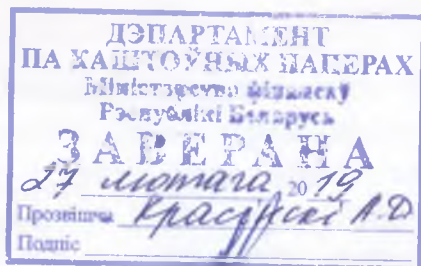 ДЭПАРТАМЕНТ
ПА КАШТОЎНЫХ ПАПЕРАХ
Міністэрства фінансаў
Рэспублікі Беларусь
ЗАВЕРАНА
27 лютага 2019
Прозвішча Красінскі А.Д
Подпіс